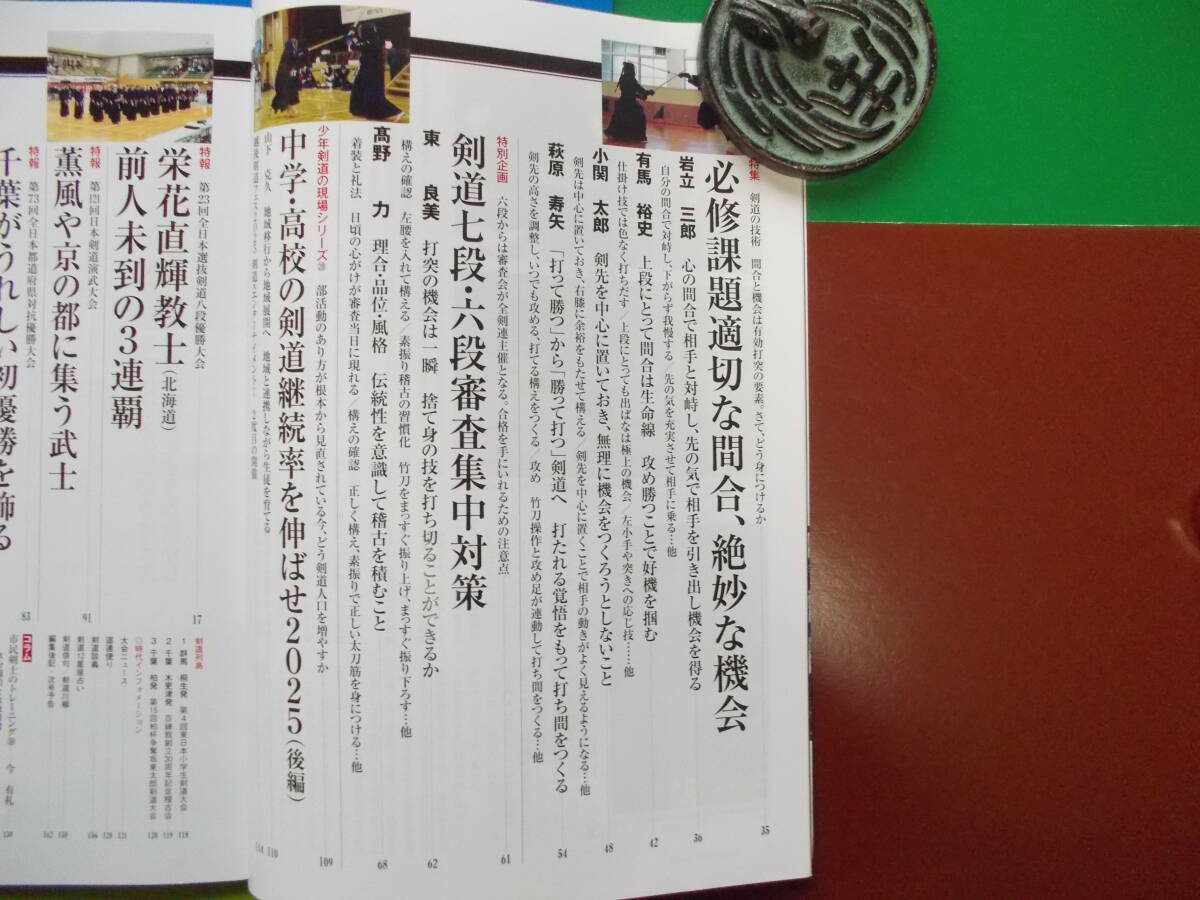 特集 剣道の技術 間合と機会は有効打突の要素。さて、どう身につけるか
必修課題適切な間合、絶妙な機会
35
岩立 三郎 心の間合で相手と対峙し、先の気で相手を引き出し機会を得る
36
自分の間合で対峙し、下がらず我慢する/先の気を充実させて相手に乗る…他
有馬 裕史 上段にとって間合は生命線 攻め勝つことで好機を掴む
42
仕掛け技では色なく打ちだす/上段にとっても出ばなは極上の機会/左小手や突きへの応じ技……他
小関 太郎 剣先を中心に置いておき、無理に機会をつくろうとしないこと
48
剣先は中心に置いておき、右膝に余裕をもたせて構える/剣先を中心に置くことで相手の動きがよく見えるようになる…他
萩原 寿矢 「打って勝つ」から「勝って打つ」剣道へ 打たれる覚悟をもって打ち間をつくる
54
剣先の高さを調整し、いつでも攻める、打てる構えをつくる/攻め 竹刀操作と攻め足が連動して打ち間をつくる…他
特別企画 六段からは審査会が全剣連主催となる。合格を手にいれるための注意点
61
剣道七段・六段審査集中対策
東 良美 打突の機会は一瞬 捨て身の技を打ち切ることができるか
62
構えの確認 左腰を入れて構える/素振り稽古の習慣化 竹刀をまっすぐ振り上げ、まっすぐ振り下ろす…他
髙野 力 理合・品位・風格 伝統性を意識して稽古を積むこと
68
着装と礼法 日頃の心がけが審査当日に現れる/構えの確認 正しく構え、素振りで正しい太刀筋を身につける…他
少年剣道の現場シリーズ⑳ 部活動のあり方が根本から見直されている今、どう剣道人口を増やすか
109
中学・高校の剣道継続率を伸ばせ2025(後編)
山下 克久 地域移行から地域展開へ 地域と連携しながら生徒を育てる
110
114
特報 第23回全日本選抜剣道八段優勝大会
17
栄花直輝教士(北海道)
前人未到の3連覇
特報 第121回日本剣道演武大会
91
薫風や京の都に集う武士
特報 第73回全日本都道府県対抗優勝大会
83
千葉がうれしい初優勝を飾る
剣道列島
1 群馬 桐生発 第4回東日本小学生剣道大会 118
2 千葉 木更津発 百錬館創立30周年記念稽古会 119
3 千葉 柏発 第15回柏杯争奪坂東太郎剣道大会 120
◎時代インフォメーション
大会ニュース 121
道連便り 128
剣道談義 146
剣道12星座占い
剣道俳句 剣道川柳 160
編集後記・次号予告 162
コラム
市民剣士のトレーニング 今 有礼 130